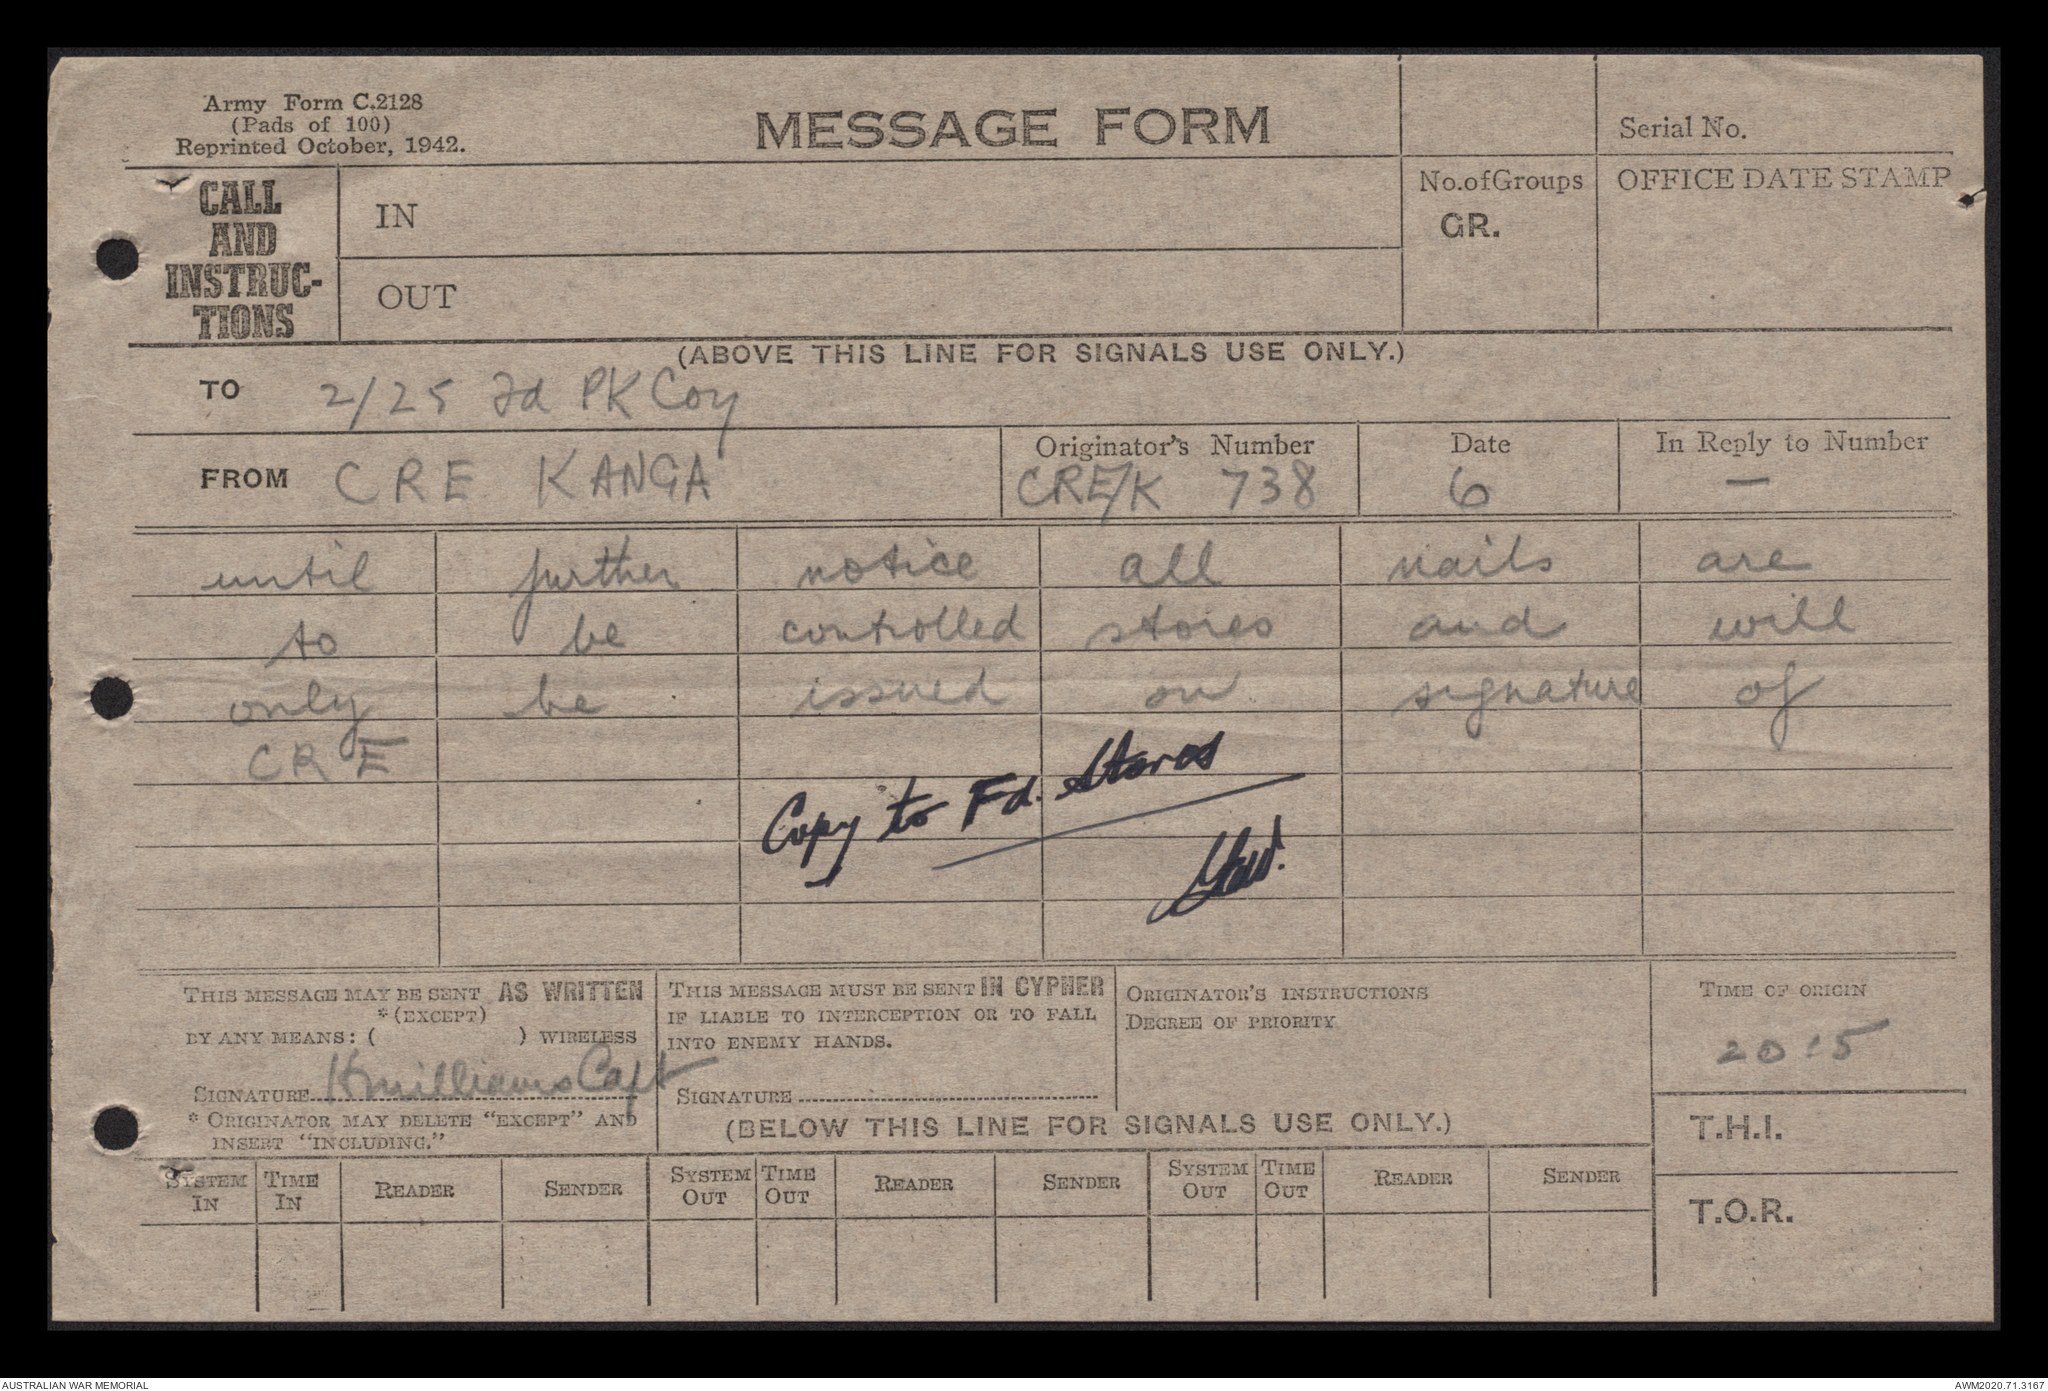 Army Form C.2128
(Pads of 100)
Reprinted October, 1942.
MESSAGE FORM
Serial No.
CALL
AND
INSTRUC-
TIONS
IN
OUT
No. of Groups
GR.
OFFICE DATE STAMP
(ABOVE THIS LINE FOR SIGNALS USE ONLY.)
TO 2/25 Fd PK Coy
FROM CRE KANGA
Originator's Number
CRE/K 738
Date
6
In Reply to Number
—
until further notice all nails are
to be controlled stores and will
only be issued on signature of
CRE
Copy to Fd. Stores
THIS MESSAGE MAY BE SENT AS WRITTEN
* (EXCEPT)
BY ANY MEANS: ( ) WIRELESS
SIGNATURE Williams Capt
* ORIGINATOR MAY DELETE "EXCEPT" AND
INSERT "INCLUDING."
THIS MESSAGE MUST BE SENT IN CYPHER
IF LIABLE TO INTERCEPTION OR TO FALL
INTO ENEMY HANDS.
SIGNATURE
ORIGINATOR'S INSTRUCTIONS
DEGREE OF PRIORITY
TIME OF ORIGIN
2015
T.H.I.
T.O.R.
(BELOW THIS LINE FOR SIGNALS USE ONLY.)
SYSTEM IN TIME IN READER SENDER SYSTEM OUT TIME OUT READER SENDER SYSTEM OUT TIME OUT READER SENDER
AUSTRALIAN WAR MEMORIAL
AWM2020.71.3167